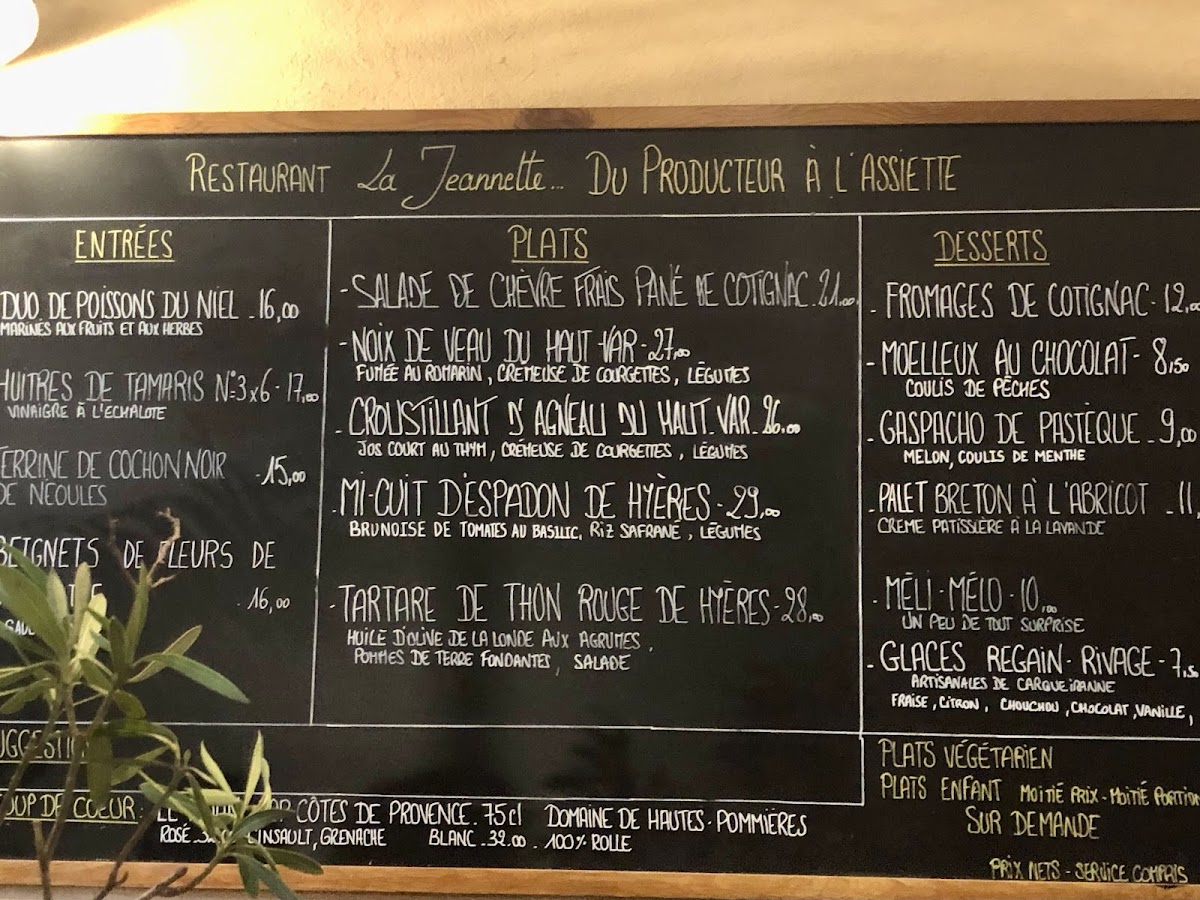 RESTAURANT La Jeannette... DU PRODUCTEUR À L'ASSIETTE
ENTRÉES
DUO DE POISSONS DU NIEL - 16,00
MARINES AUX FRUITS ET AUX HERBES
HUITRES DE TAMARIS N°3 x 6 - 17,00
VINAIGRE À L'ECHALOTE
TERRINE DE COCHON NOIR - 15,00
DE NEOULES
BEIGNETS DE FLEURS DE
- 16,00
PLATS
- SALADE DE CHÈVRE FRAIS PANÉ DE COTIGNAC - 21,00
- NOIX DE VEAU DU HAUT-VAR - 27,00
FUMÉE AU ROMARIN, CRÉMEUSE DE COURGETTES, LÉGUMES
- CROUSTILLANT D'AGNEAU DU HAUT VAR - 26,00
JOS COURT AU THYM, CRÉMEUSE DE COURGETTES, LÉGUMES
- MI-CUIT D'ESPADON DE HYÈRES - 29,00
BRUNOISE DE TOMATES AU BASILIC, RIZ SAFRANE, LÉGUMES
- TARTARE DE THON ROUGE DE HYÈRES - 28,00
HUILE D'OLIVE DE LA LONDE AUX AGRUMES,
POMMES DE TERRE FONDANTES, SALADE
DESSERTS
- FROMAGES DE COTIGNAC - 12,00
- MOELLEUX AU CHOCOLAT - 8,50
COULIS DE PÊCHES
- GASPACHO DE PASTÈQUE - 9,00
MELON, COULIS DE MENTHE
- PALET BRETON À L'ABRICOT - 11,
CREME PATISSIÈRE À LA LAVANDE
- MÉLI-MÉLO - 10,00
UN PEU DE TOUT SURPRISE
- GLACES REGAIN-RIVAGE - 7,50
ARTISANALES DE CARQUEIRANNE
FRAISE, CITRON, CHOUCHOU, CHOCOLAT, VANILLE,
UGGESTIO
OUP DE COEUR: CÔTES DE PROVENCE - 75cl DOMAINE DE HAUTES-POMMIÈRES
ROSÉ - CINSAULT, GRENACHE BLANC - 32.00 - 100% ROLLE
PLATS VÉGÉTARIEN
PLATS ENFANT MOITIÉ PRIX - MOITIÉ PORTION
SUR DEMANDE
PRIX NETS - SERVICE COMPRIS